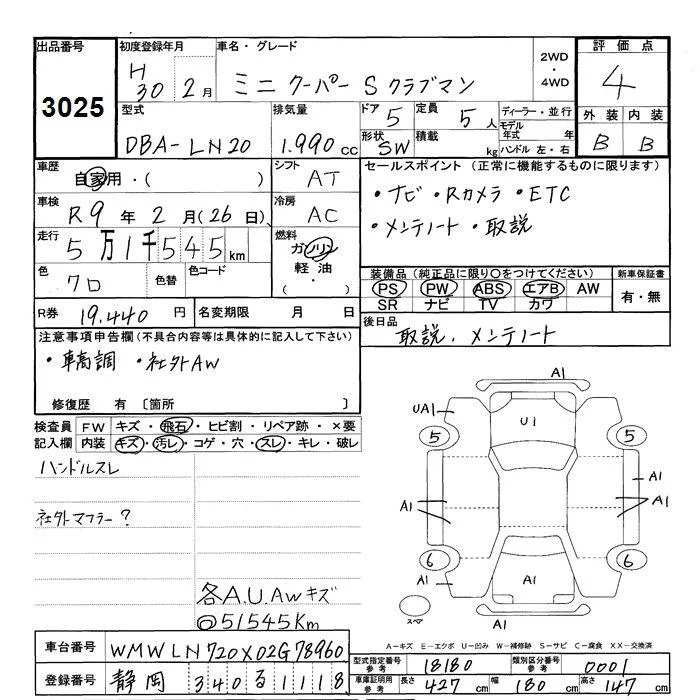 出品番号
3025
初度登録年月
H30 2月
車名・グレード
ミニ クーパー S クラブマン
2WD・4WD
評価点
4
外装 内装
B B
型式
DBA-LN20
排気量
1.990cc
ドア 5
形状 SW
定員 5人
積載 kg
ディーラー・並行
モデル年式 年
ハンドル 左・右
車歴
自家用・( )
シフト
AT
車検
R9年2月(26日)
冷房
AC
走行
5万1千545km
燃料
ガソリン
軽油
( ・ )
色
クロ
色替
色コード
R券 19.440円
名変期限 月 日
セールスポイント(正常に機能するものに限ります)
・ナビ・Rカメラ・ETC
・メンテノート・取説
装備品(純正品に限り○をつけてください)
PS PW ABS エアB AW
SR ナビ TV カワ
新車保証書
有・無
後日品
取説、メンテノート
注意事項申告欄(不具合内容等は具体的に記入して下さい)
・車高調 ・社外AW
修復歴 有〔箇所 〕
検査員記入欄
FW キズ・飛石・ヒビ割・リペア跡・×要
内装 キズ・汚レ・コゲ・穴・スレ・キレ・破レ
ハンドルスレ
社外マフラー?
各A.U.AWキズ
◎51545Km
A1
UA1
U1
A1
5
5
A1
A1
A1
6
6
A1
A1
A1
A1
スペア
A-キズ E-エクボ U-凹み W-補修跡 S-サビ C-腐食 XX-交換済
車台番号
WMWLN720X02G78960
登録番号
静岡 340 る 1118
型式指定番号 参考 18180
類別区分番号 参考 0001
車庫証明用 参考 長さ 427cm 幅 180cm 高さ 147cm